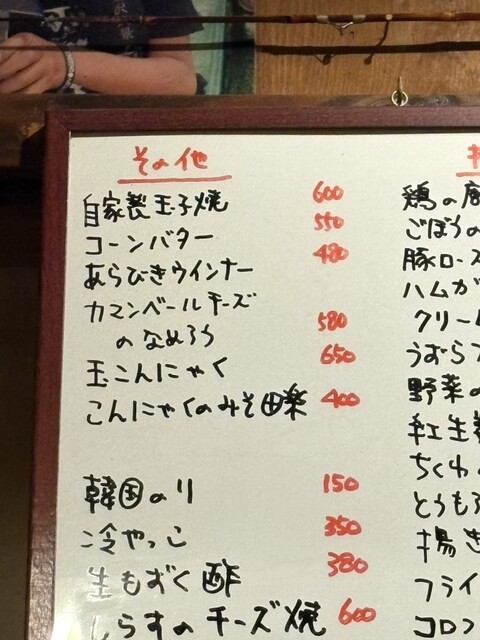 その他
自家製玉子焼 600
コーンバター 550
あらびきウインナー 480
カマンベールチーズ
のなめろう 580
玉こんにゃく 650
こんにゃくのみそ田楽 400
韓国のり 150
冷やっこ 350
生もずく酢 380
しらすのチーズ焼 600
鶏の
ごぼうの
豚ロース
ハムカ
クリーム
うずら
野菜の
紅生
ちくわ
とうもろ
揚
フライ
コロッ